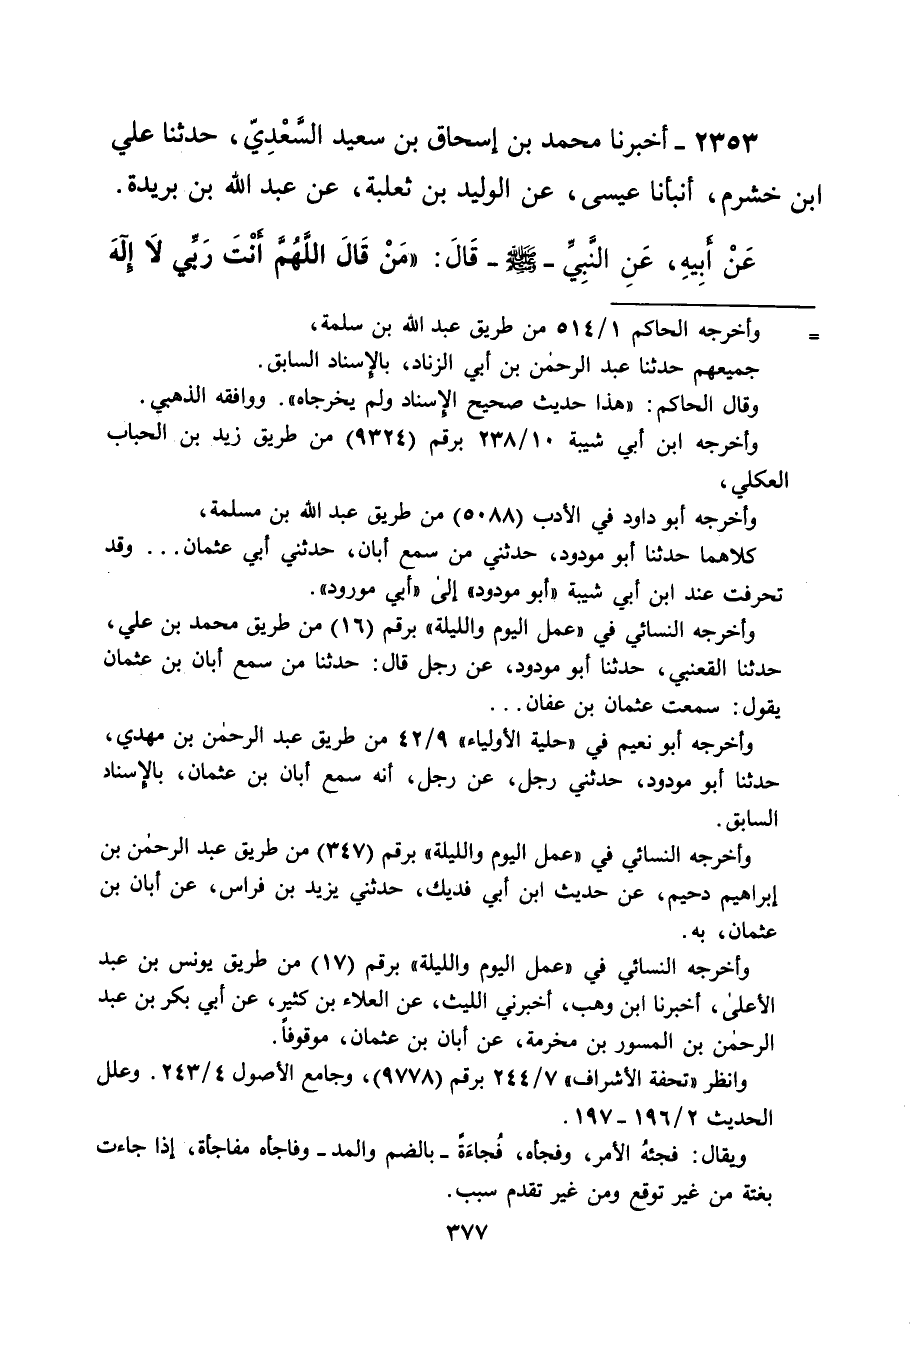 ٢٣٥٣ ـ أخبرنا محمد بن إسحاق بن سعيد السَّعْدِيّ، حدثنا علي
ابن خشرم، أنبأنا عيسى، عن الوليد بن ثعلبة، عن عبد الله بن بريدة.
عَنْ أَبِيهِ، عَنِ النَّبِيِّ ـ ﷺ ـ قَالَ: «مَنْ قَالَ اللَّهُمَّ أَنْتَ رَبِّي لَا إِلٓهَ
= وأخرجه الحاكم ٥١٤/١ من طريق عبد الله بن سلمة،
جميعهم حدثنا عبد الرحمٰن بن أبي الزناد، بالإسناد السابق.
وقال الحاكم: «هذا حديث صحيح الإسناد ولم يخرجاه». ووافقه الذهبي.
وأخرجه ابن أبي شيبة ٢٣٨/١٠ برقم (٩٣٢٤) من طريق زيد بن الحباب
العكلي،
وأخرجه أبو داود في الأدب (٥٠٨٨) من طريق عبد الله بن مسلمة،
كلاهما حدثنا أبو مودود، حدثني من سمع أبان، حدثني أبي عثمان... وقد
تحرفت عند ابن أبي شيبة «أبو مودود» إلىٰ «أبي مورود».
وأخرجه النسائي في «عمل اليوم والليلة» برقم (١٦) من طريق محمد بن علي،
حدثنا القعنبي، حدثنا أبو مودود، عن رجل قال: حدثنا من سمع أبان بن عثمان
يقول: سمعت عثمان بن عفان...
وأخرجه أبو نعيم في «حلية الأولياء» ٤٢/٩ من طريق عبد الرحمٰن بن مهدي،
حدثنا أبو مودود، حدثني رجل، عن رجل، أنه سمع أبان بن عثمان، بالإسناد
السابق.
وأخرجه النسائي في «عمل اليوم والليلة» برقم (٣٤٧) من طريق عبد الرحمٰن بن
إبراهيم دحيم، عن حديث ابن أبي فديك، حدثني يزيد بن فراس، عن أبان بن
عثمان، به.
وأخرجه النسائي في «عمل اليوم والليلة» برقم (١٧) من طريق يونس بن عبد
الأعلىٰ، أخبرنا ابن وهب، أخبرني الليث، عن العلاء بن كثير، عن أبي بكر بن عبد
الرحمٰن بن المسور بن مخرمة، عن أبان بن عثمان، موقوفاً.
وانظر «تحفة الأشراف» ٢٤٤/٧ برقم (٩٧٧٨)، وجامع الأصول ٢٤٣/٤. وعلل
الحديث ١٩٦/٢ ـ ١٩٧.
ويقال: فجئهُ الأمر، وفجأه، فُجاءَةً ـ بالضم والمد ـ وفاجأه مفاجأة، إذا جاءت
بغتة من غير توقع ومن غير تقدم سبب.
٣٧٧